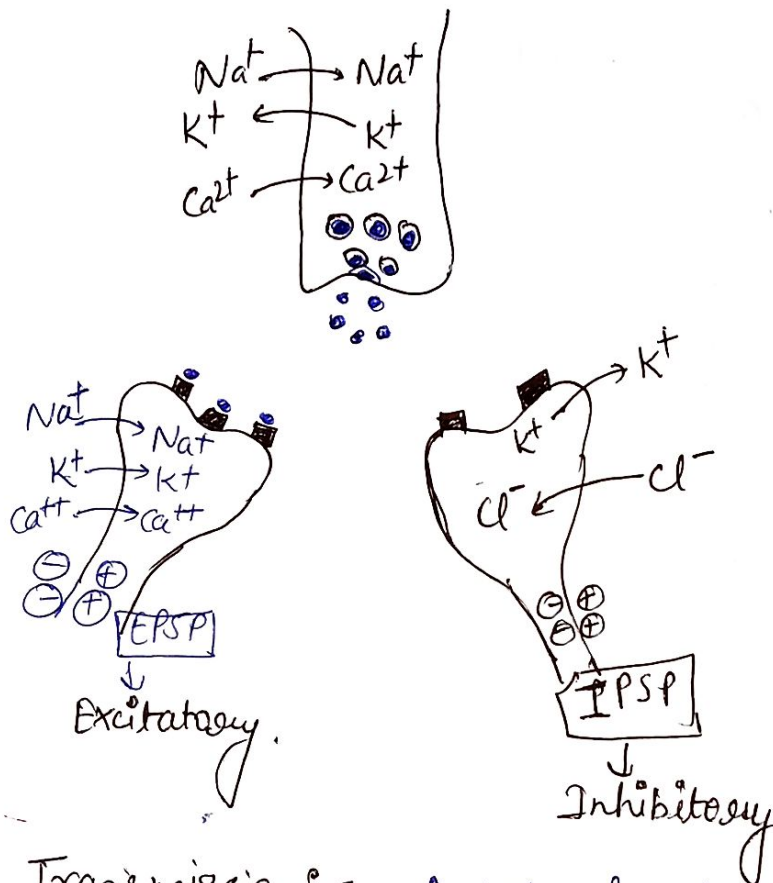 Na+ → Na+
K+ ← K+
Ca2+ → Ca2+
Na+ → Na+
K+ → K+
Ca++ → Ca++
⊖ ⊕
⊖ ⊕
EPSP
↓
Excitatory.
K+ → K+
Cl- ← Cl-
⊖ ⊕
⊖ ⊕
IPSP
↓
Inhibitory